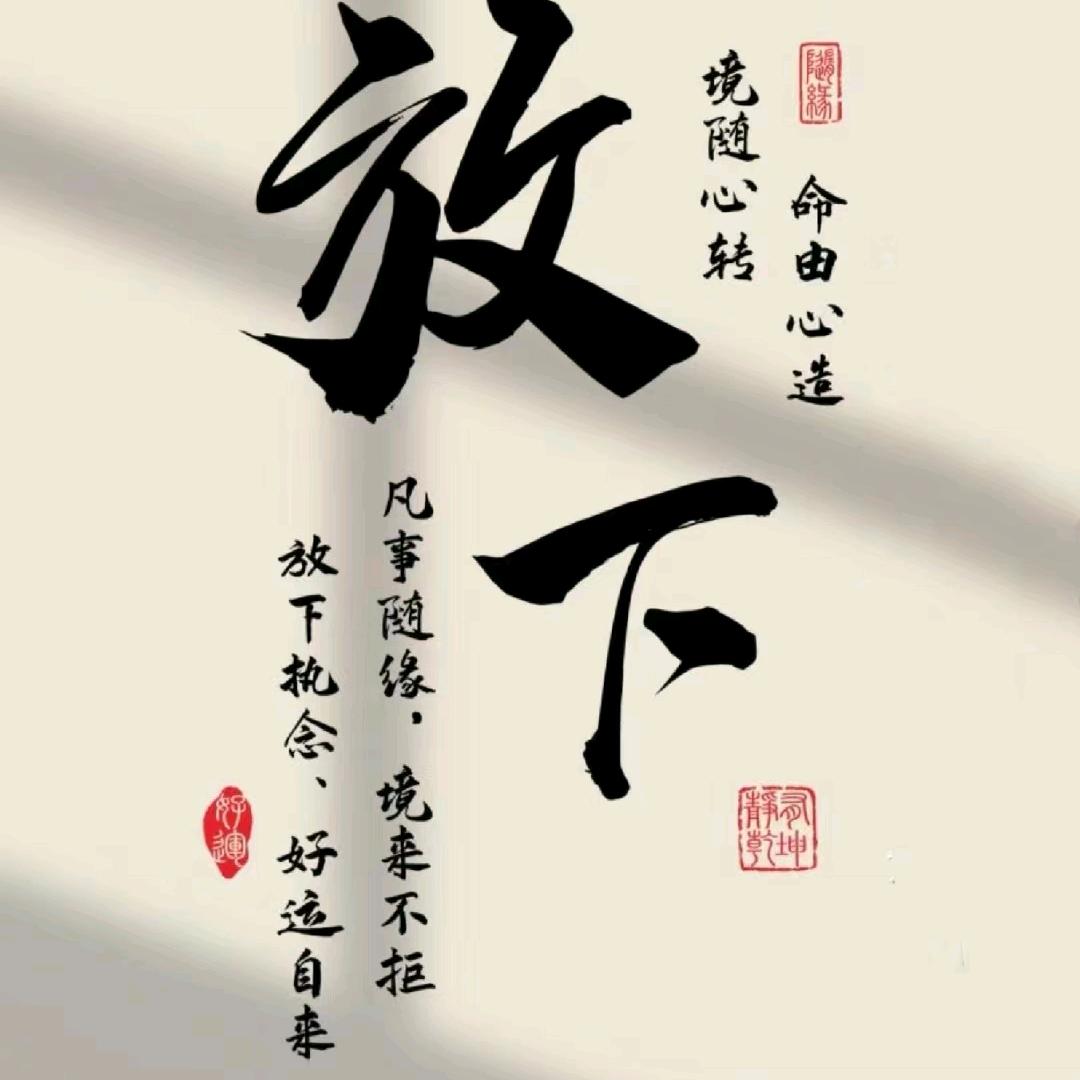 放下
随缘
命由心造
境随心转
凡事随缘，境来不拒
放下执念、好运自来
静乾
坤
好運